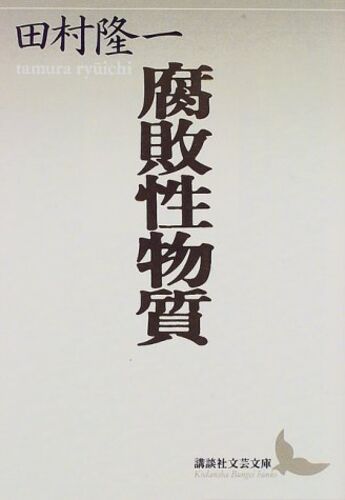 田村隆一
tamura ryūichi
腐敗性物質
講談社文芸文庫
Kodansha Bungei bunko